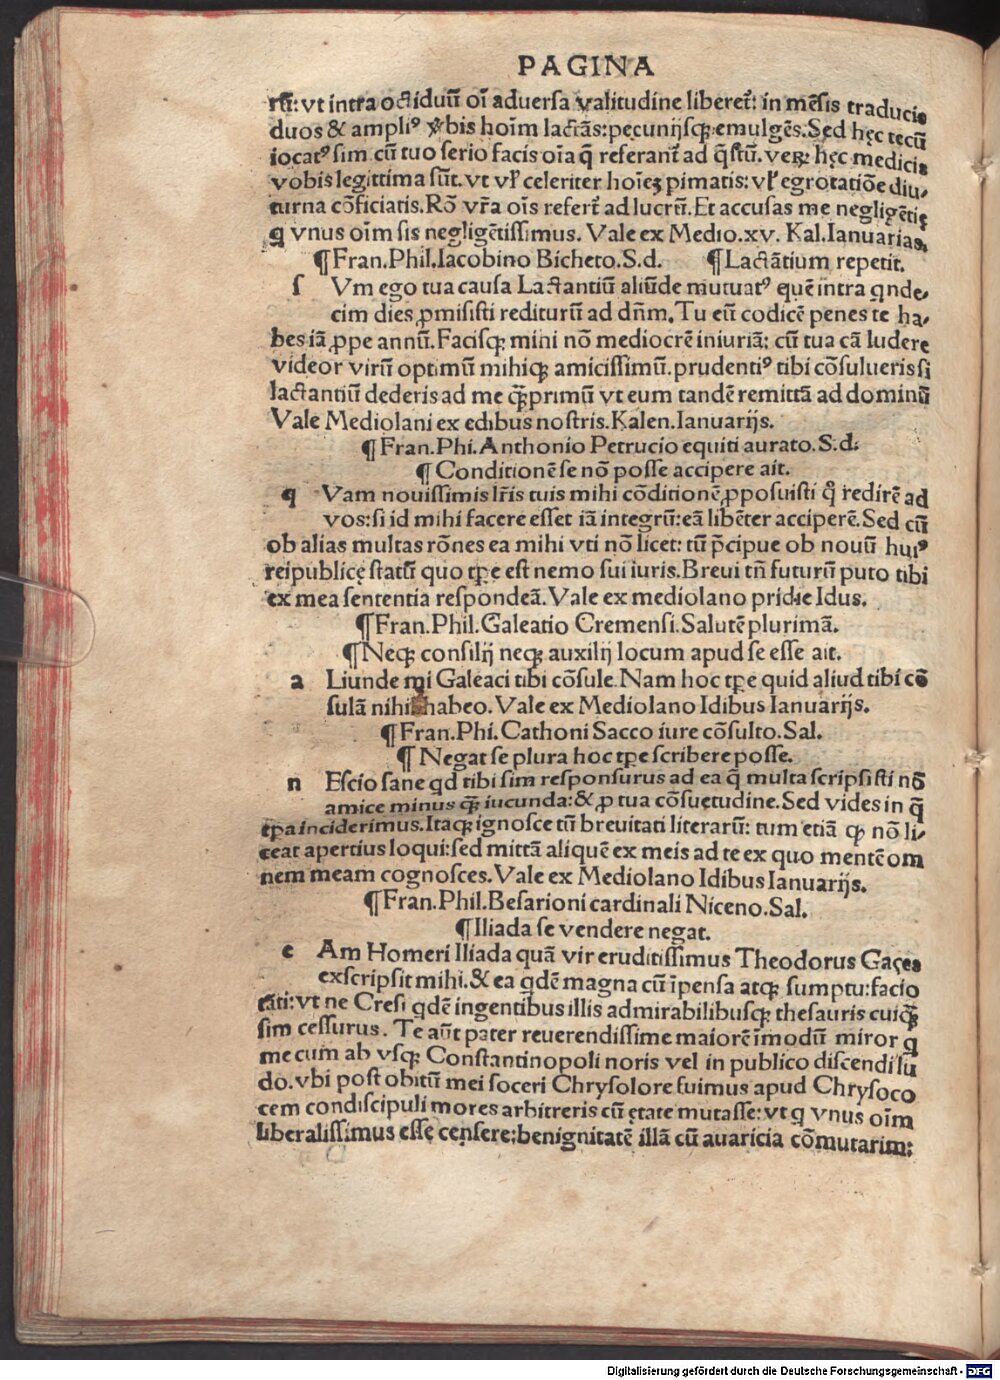 PAGINA
rũ: vt intra octiduũ oĩ aduersa valitudine liberet᷑: in mẽsis traducis
duos & ampliꝰ v̾bis hoĩm lactãs: pecunijsqꝫ emulgẽs. Sed hęc tecũ
iocatꝰ sim cũ tuo serio facis oĩa q̃ referant᷑ ad q̃stũ. veꝝ: hęc medicis
vobis legittima sũt. vt vl̓ celeriter hoĩes pimatis: vl̓ egrotatiõe diu⸗
turna cõficiatis. Rõ vr̃a oĩs refert᷑ ad lucrũ. Et accusas me negligẽtię
ꝙ vnus oĩm sis negligẽtissimus. Vale ex Medio. xv. Kal. Ianuarias.
¶ Fran. Phil. Iacobino Bicheto. S. d. ¶ Lactãtium repetit.
s Vm ego tua causa Lactantiũ aliũde mutuatꝰ quẽ intra qnde⸗
cim dies ꝓmisisti rediturũ ad dñm. Tu eũ codicẽ penes te ha⸗
bes iã ꝓpe annũ. Facisqꝫ mihi nõ mediocrẽ iniuriã: cũ tua cã ludere
videor virũ optimũ mihiqꝫ amicissimũ. prudentiꝰ tibi cõsulueris si
lactantiũ dederis ad me q̃ꝫprimũ vt eum tandẽ remittã ad dominũ
Vale Mediolani ex edibus nostris. Kalen. Ianuarijs.
¶ Fran. Phi. Anthonio Petrucio equiti aurato. S. d.
¶ Conditionẽ se nõ posse accipere ait.
q Vam nouissimis lr̃is tuis mihi cõditionẽ ꝓposuisti q̊ redirẽ ad
vos: si id mihi facere esset iã integrũ: eã libẽter acciperẽ. Sed cũ
ob alias multas rõnes ea mihi vti nõ licet: tũ p̃cipue ob nouũ huiꝰ
reipublicę statũ quo tꝑe est nemo sui iuris. Breui tñ futurũ puto tibi
ex mea sententia respondeã. Vale ex mediolano pridie Idus.
¶ Fran. Phil. Galeatio Cremensi. Salutẽ plurimã.
¶ Neqꝫ consilij neqꝫ auxilij locum apud se esse ait.
a Liunde mi Galeaci tibi cõsule. Nam hoc tꝑe quid aliud tibi cõ
sulã nihil habeo. Vale ex Mediolano Idibus Ianuarijs.
¶ Fran. Phi. Cathoni Sacco iure cõsulto. Sal.
¶ Negat se plura hoc tꝑe scribere posse.
n Escio sane qd tibi sim responsurus ad ea q̃ multa scripsisti nõ
amice minus q̃ꝫ iucunda: & ꝓ tua cõsuetudine. Sed vides in q̃
tꝑa inciderimus. Itaqꝫ ignosce tũ breuitati literarũ: tum etiã ꝙ nõ li⸗
ceat apertius loqui: sed mittã aliquẽ ex meis ad te ex quo mentẽ om
nem meam cognosces. Vale ex Mediolano Idibus Ianuarijs.
¶ Fran. Phil. Besarioni cardinali Niceno. Sal.
¶ Iliada se vendere negat.
e Am Homeri Iliada quã vir eruditissimus Theodorus Gaçes
exscripsit mihi. & ea qdẽ magna cũ ĩpensa atqꝫ sumptu: facio
tãti: vt ne Cresi qdẽ ingentibus illis admirabilibusqꝫ thesauris cuiq̃ꝫ
sim cessurus. Te aũt pater reuerendissime maiorẽ ĩmodũ miror ꝙ
me cum ab vsqꝫ Constantinopoli noris vel in publico discendi lu
do. vbi post obitũ mei soceri Chrysolore fuimus apud Chrysoco
cem condiscipuli mores arbitreris cũ ętate mutasse: vt ꝙ vnus oĩm
liberalissimus essę censere: benignitatẽ illã cũ auaricia cõmutarim:
Digitalisierung gefördert durch die Deutsche Forschungsgemeinschaft - DFG